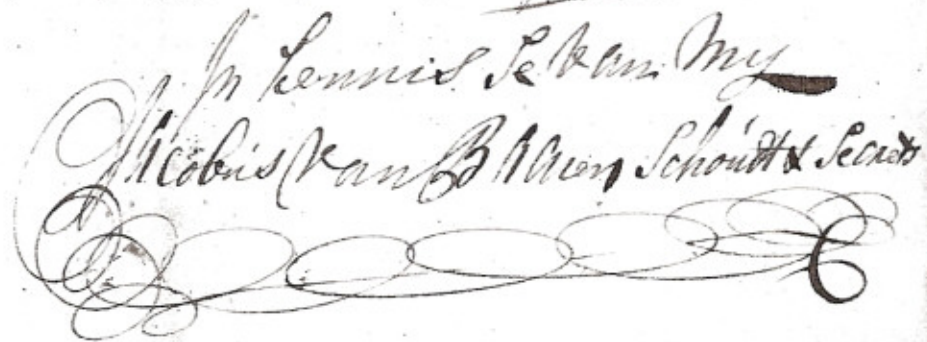 In kennis se van My
Jacobus van Bruen Schoutt & Secrets